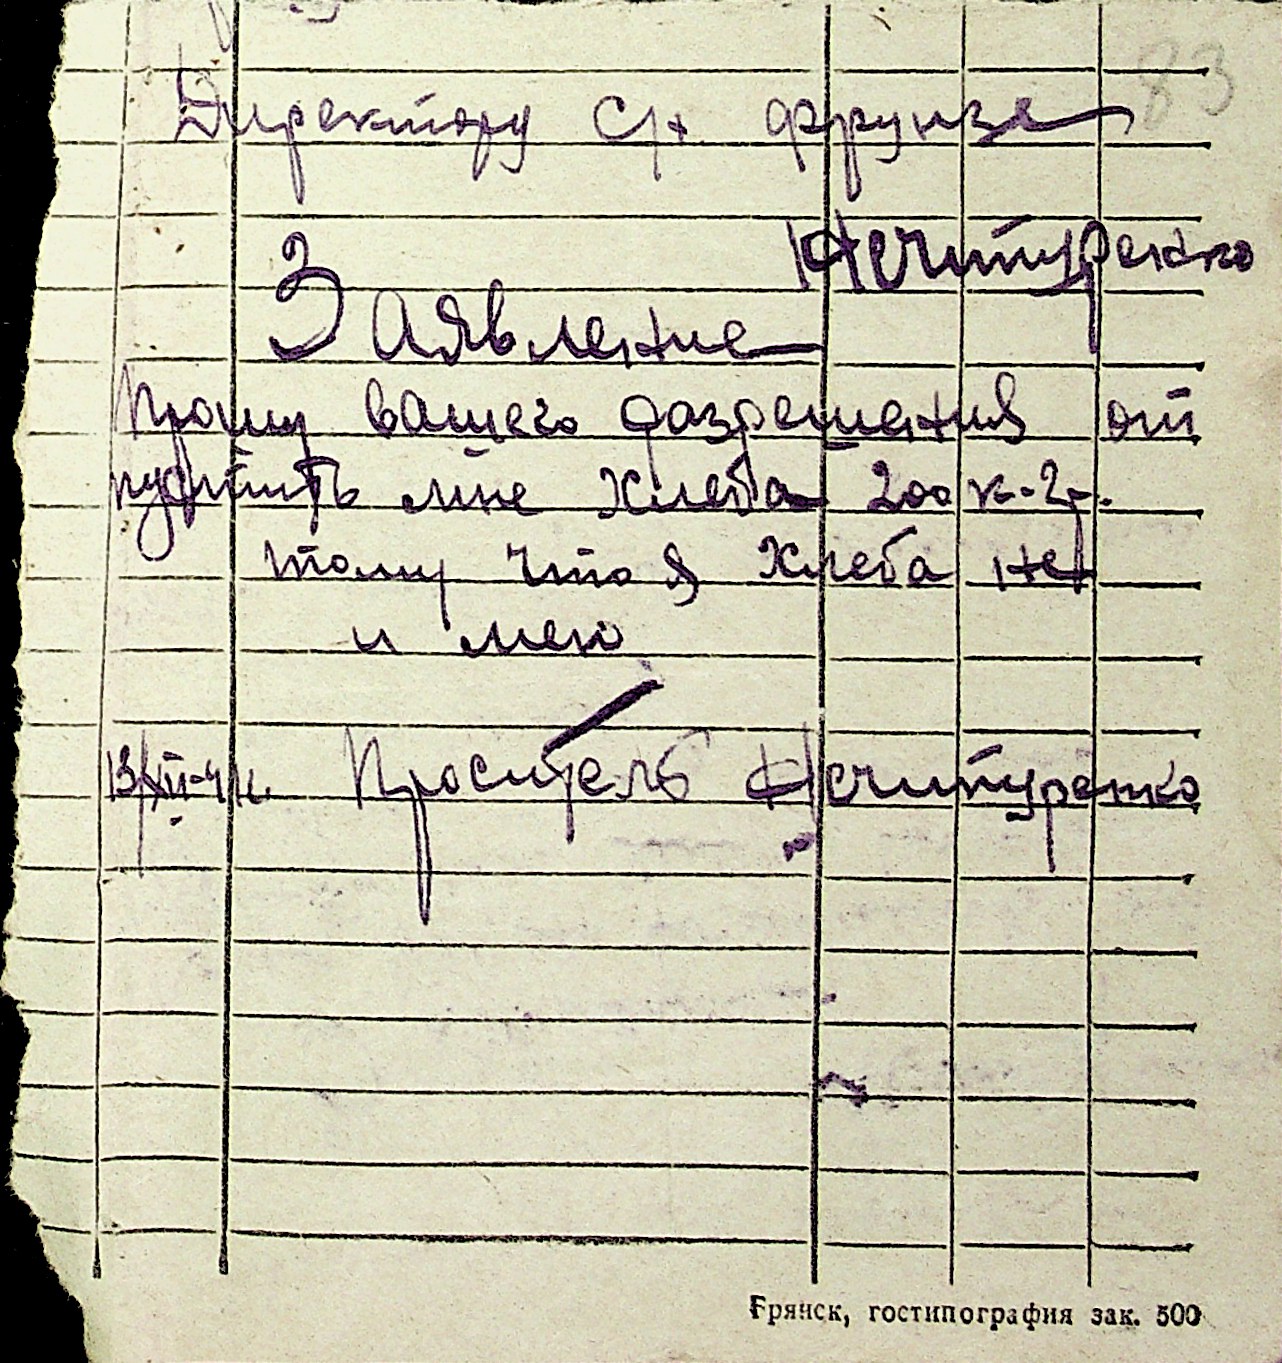 83
Директору с/х Фрунзе
Нечитуренко
Заявление
Прошу вашего разрешения от
пустить мне хлеба 200 к-гр.
тому что я хлеба не
имею
13/XII-41 г. Проситель Нечитуренко
Брянск, гостипография зак. 500